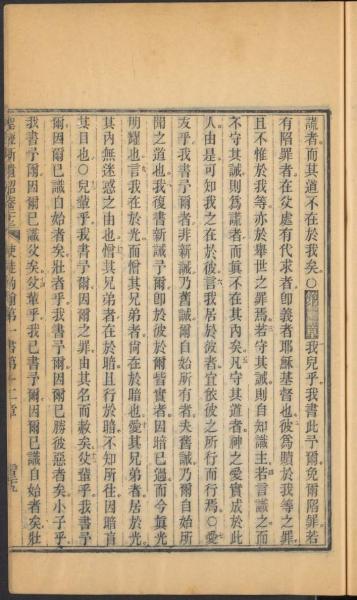 謊者而其道不在於我矣〇第二章我兒乎我書此予爾免爾陷罪若
有陷罪者在父處有代求者卽義者耶穌基督也彼爲贖於我等之罪
且不惟於我等亦於舉世之罪焉若守其誡則自知識主若言識之而
不守其誡則爲謊者而眞不在其內矣凡守其道者神之愛實成於此
人由是可知我之在於彼言我居於彼者宜依彼之所行而行焉〇愛
友乎我書予爾者非新誡乃舊誡爾自始所有者夫舊誡乃爾自始所
聞之道也我復書新誡予爾卽於彼於爾皆實者因暗已過而今眞光
明耀也言我在於光而憎其兄弟者尙在於暗也愛其兄弟者居於光
其內無迷惑之由也憎其兄弟者在於暗且行於暗不知所往因暗盲
其目也〇兒輩乎我書予爾因爾之罪由其名而赦矣父輩乎我書予
爾因爾已識自始者矣壯者乎我書予爾因爾已勝彼惡者矣小子乎
我書予爾因爾已識父矣父輩乎我已書予爾因爾已識自始者矣壯
聖經新遺詔卷三 使徒約翰第一書第一二章